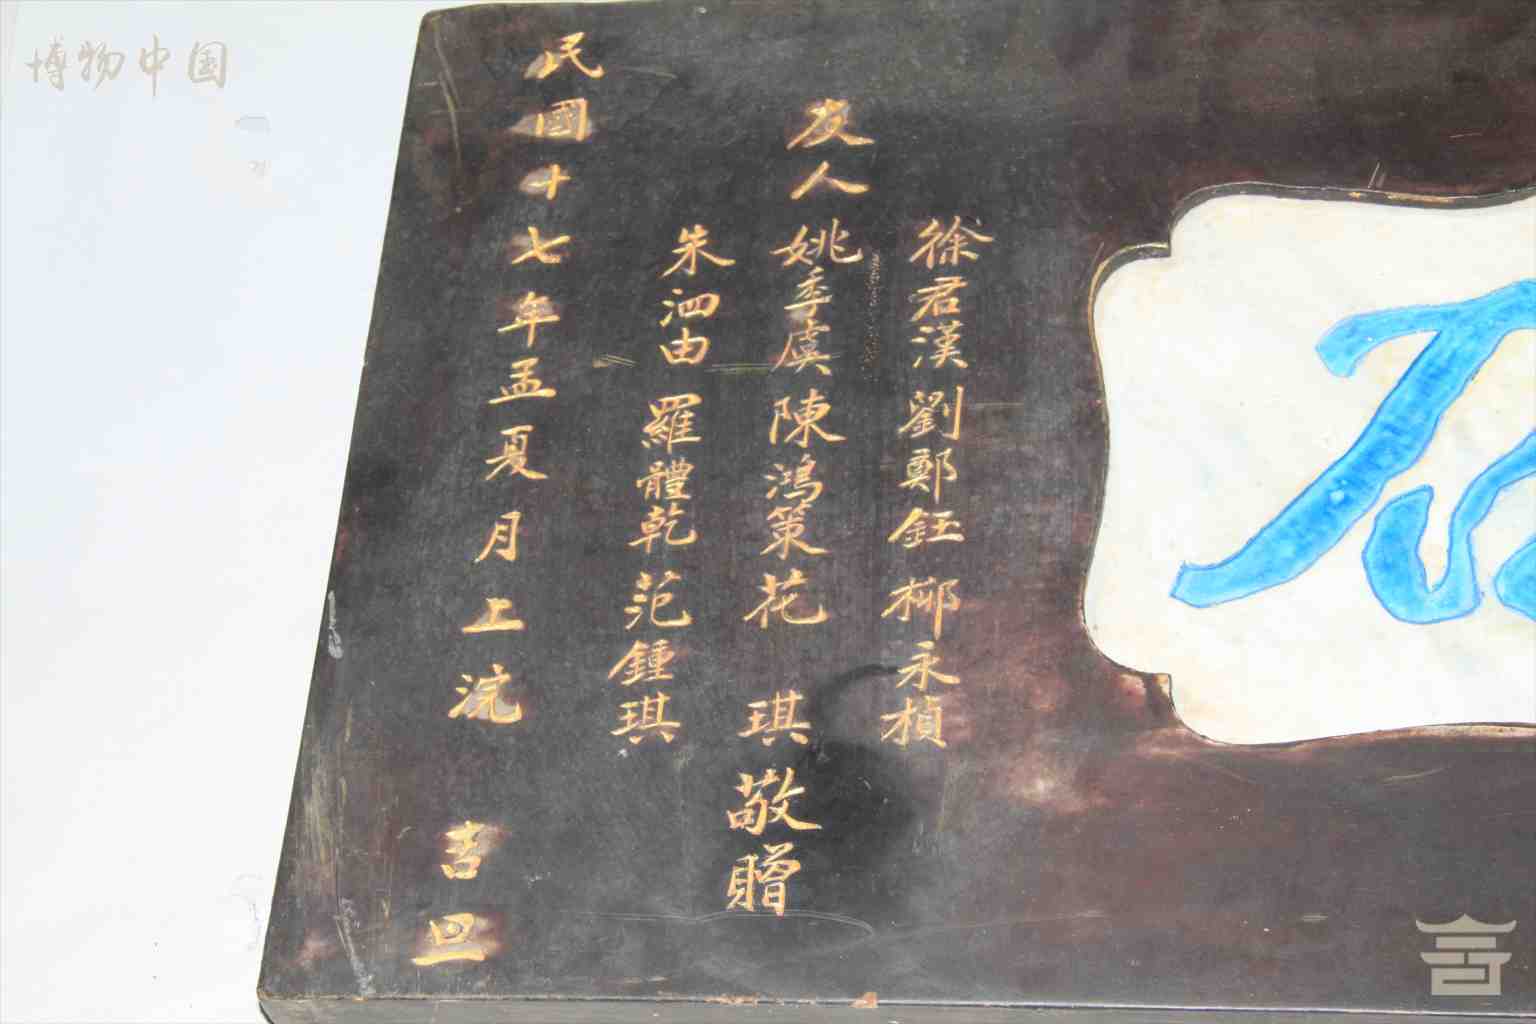 博物中国
徐君漢 劉鄭鈺 柳永楨
友人 姚季虞 陳鴻策 花琪 敬贈
朱泗由 羅體乾 范鍾琪
民國十七年孟夏月上浣 吉旦